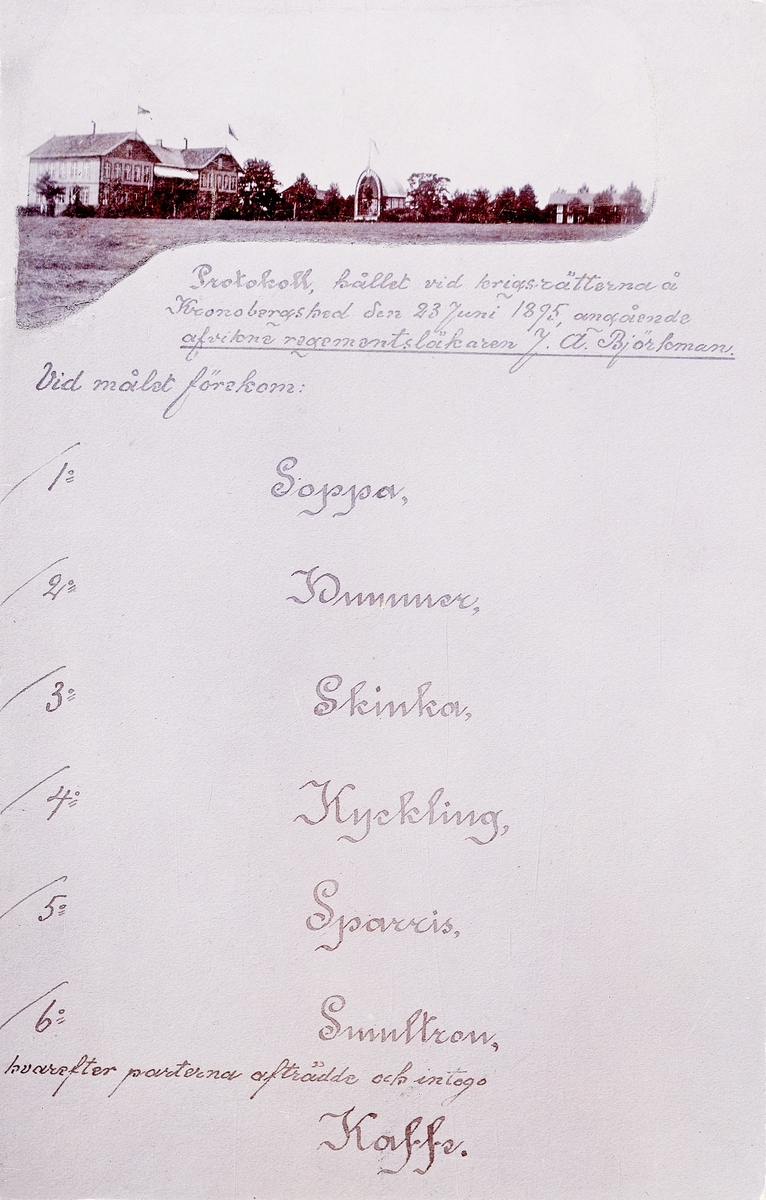 Protokoll, hållet vid krigsrätterna å
Kronobergshed den 23 Juni 1895, angående
afvikne regementsläkaren J. A. Björkman.
Vid målet förekom:
1º Soppa,
2º Hummer,
3º Skinka,
4º Kyckling,
5º Sparris,
6º Smultron,
hvarefter parterna afträdde och intogo
Kaffe.